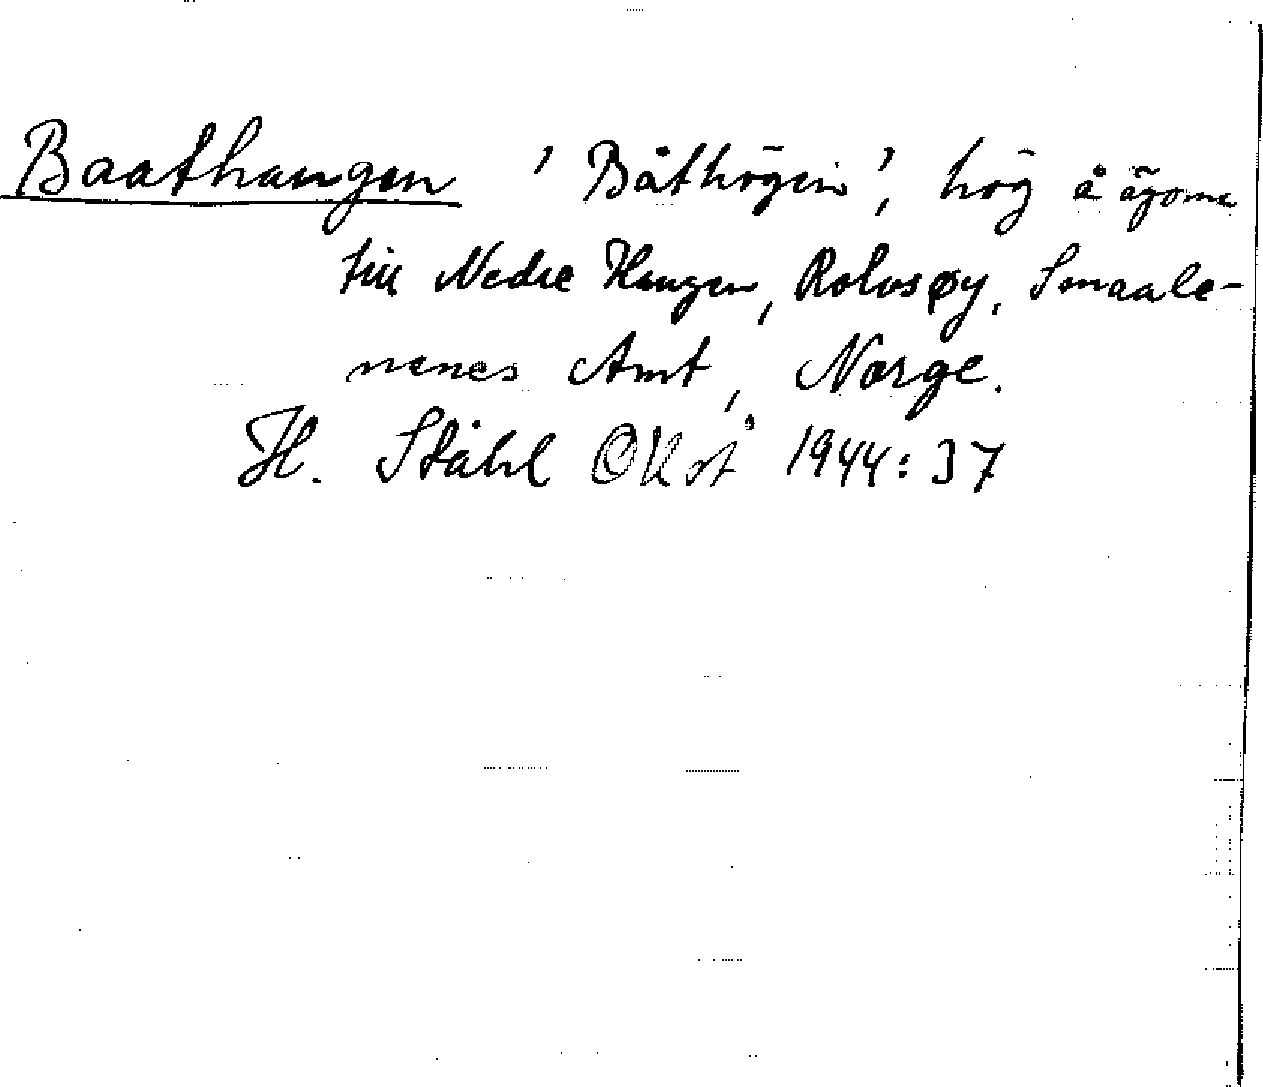 Baathaugen 'Båthögen', hög å ägorna
till Nedre Haugen, Rolvsøy, Smaale-
nenes Amt, Norge.
H. Ståhl 1944:37